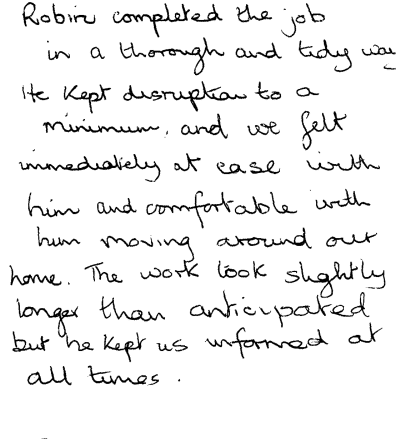 Robin completed the job
in a thorough and tidy way
He kept disruption to a
minimum, and we felt
immediately at ease with
him and comfortable with
him moving around our
home. The work took slightly
longer than anticipated
but he kept us informed at
all times.